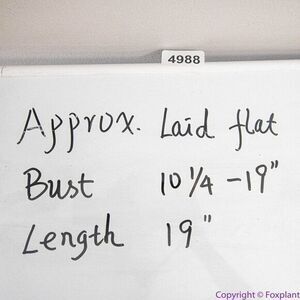 4988
Approx. Laid flat
Bust 10 1/4 - 19"
Length 19"
Copyright © Foxplant